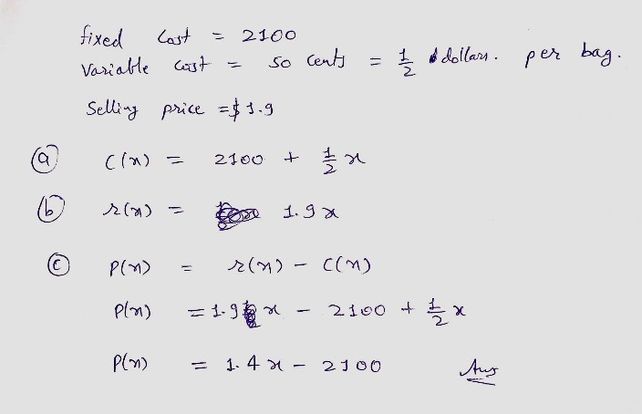 fixed Cost = 2100
Variable cost = 50 cents = 1/2 dollars. per bag.
Selling price = $ 1.9
(a) C(x) = 2100 + 1/2 x
(b) r(x) = 1.9x
(c) P(x) = r(x) - C(x)
P(x) = 1.9 x - 2100 + 1/2 x
P(x) = 1.4x - 2100 Ans